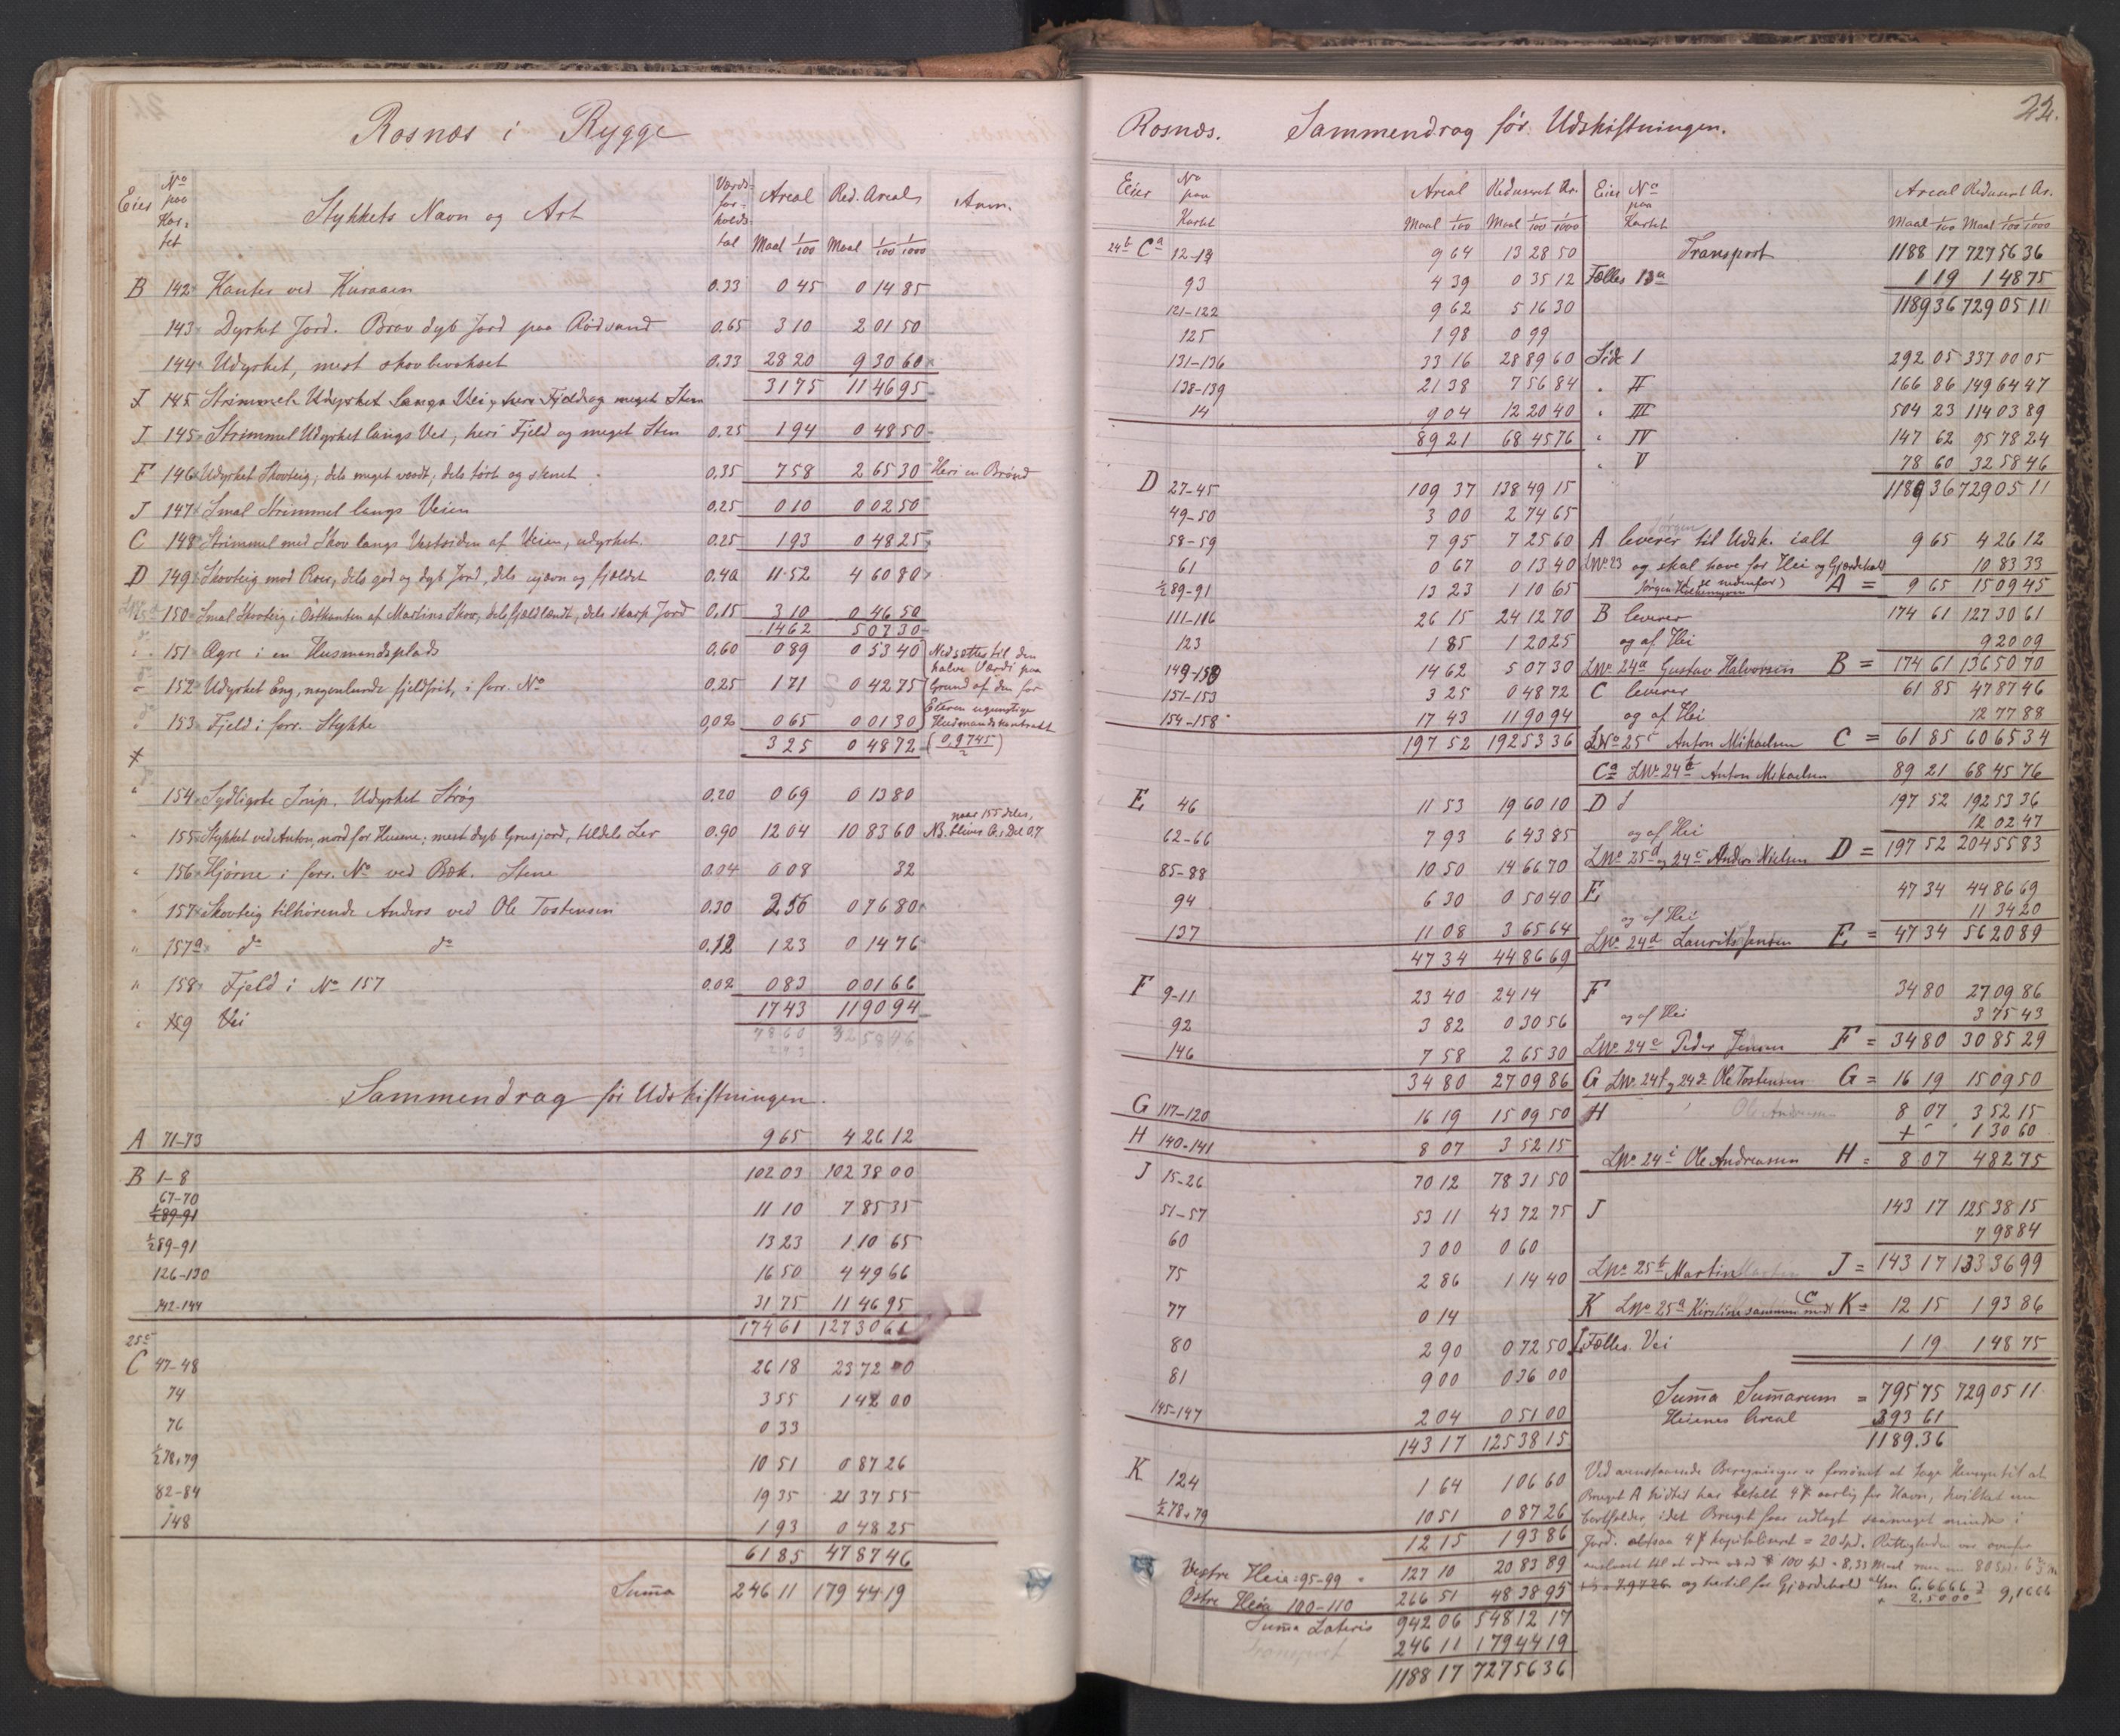 Rosnæs i Rygge
Eier No paa Kartet Stykkets Navn og Art Værdiforholdstal Areal Red. Areal Anm.
Maal 1/100 Maal 1/100 1/1000
B 142 Kanter ved Kuraaen 0.33 0 45 0 14 85
143 Dyrket Jord. Brav dyb Jord paa Rødsand 0.65 3 10 2 01 50
144 Udyrket, mest skovbevokset 0.33 28 20 9 30 60
31 75 11 46 95
I 145 Strimmel Udyrket langs Vei, heri Fjeld og meget Sten
J 145 Strimmel Udyrket langs Vei, heri Fjeld og meget Sten 0.25 1 94 0 48 50
F 146 Udyrket Skovteig, dels meget vaadt, dels tørt og stenet 0,35 7 58 2 65 30 Heri en Brønd
J 147 Smal Strimmel langs Veien 0.25 0 10 0 02 50
C 148 Strimmel med Skov langs Vestsiden af Veien, udyrket. 0.25 1 93 0 48 25
D 149 Skovteig mod Roer, dels god og dyb Jord, dels ujævn og fjeldet 0.40 11 52 4 60 80
150 Smal Skovteig i Østkanten af Martins Skov, dels fjeldlændt, dels skarp Jord 0,15 3 10 0 46 50
14 62 5 07 30
151 Agre i en Husmandsplads 0,60 0 89 0 53 40 Nedsættes til den
halve Værdi paa
152 Udyrket Eng, nogenlunde fjeldfrit, i forr. No 0,25 1 71 0 42 75 Grund af den for
Eieren ugunstige
153 Fjeld i forr. Stykke 0,02 0 65 0 01 30 Husmandskontrakt
3 25 0 48 72 (0,9745/2)
154 Sydligste Snip, Udyrket Strøg 0.20 0 69 0 13 80
naar 155 deles,
155 Stykket ved Anton, nord for Husene; mest dyb Grusjord, tildels Ler 0.90 12 04 10 83 60 NB. blives Ø. Del 0.7
156 Hjørne i forr. No ved Bæk. Stene 0.04 0 08 32
157 Skovteig tilhørende Anders ved Ole Tostensen 0.30 2 56 0 76 80
157a do do 0.12 1 23 0 14 76
158 Fjeld i No 157 0.02 0 83 0 01 66
17 43 11 90 94
159 Vei
78 60 32 58 46
Sammendrag før Udskiftningen.
A 71-73 9 65 4 26 12
B 1-8 102 03 102 38 00
67-70 11 10 7 85 35
1/2 89-91
1/2 89-91 13 23 1 10 65
126-130 16 50 4 49 66
142-144 31 75 11 46 95
174 61 127 30 61
25c
C 47-48 26 18 23 72 00
74 3 55 1 42 00
76 0 33
1/2 78,79 10 51 0 87 26
82-84 19 35 21 37 55
148 1 93 0 48 25
61 85 47 87 46
Summa 246 11 179 44 19
22.
Rosnæs. Sammendrag før Udskiftningen.
Eier No paa Kartet Areal Reduseret Ar.
Maal 1/100 Maal 1/100 1/1000
24b Ca 12-13 9 64 13 28 50
93 4 39 0 35 12
121-122 9 62 5 16 30
125 1 98 0 99
131-136 33 16 28 89 60
138-139 21 38 7 56 84
14 9 04 12 20 40
89 21 68 45 76
D 27-45 109 37 138 49 15
49-50 3 00 2 74 65
58-59 7 95 7 25 60
61 0 67 0 13 40
1/2 89-91 13 23 1 10 65
111-116 26 15 24 12 70
123 1 85 1 20 25
149-150 14 62 5 07 30
151-153 3 25 0 48 72
154-158 17 43 11 90 94
197 52 192 53 36
E 46 11 53 19 60 10
62-66 7 93 6 43 85
85-88 10 50 14 66 70
94 6 30 0 50 40
137 11 08 3 65 64
47 34 44 86 69
F 9-11 23 40 24 14
92 3 82 0 30 56
146 7 58 2 65 30
34 80 27 09 86
G 117-120 16 19 15 09 50
H 140-141 8 07 3 52 15
J 15-26 70 12 78 31 50
51-57 53 11 43 72 75
60 3 00 0 60
75 2 86 1 14 40
77 0 14
80 2 90 0 72 50
81 9 00 0 36 00
145-147 2 04 0 51 00
143 17 125 38 15
K 124 1 64 1 06 60
1/2 78,79 10 51 0 87 26
12 15 1 93 86
Vestre Heia: 95-99 127 10 20 83 89
Østre Heia 100-110 266 51 48 38 95
Summa Lateris 942 06 548 12 17
Transport 246 11 179 44 19
1188 17 727 56 36
Eier No paa Kartet Areal Reduseret Ar.
Maal 1/100 Maal 1/100 1/1000
Transport 1188 17 727 56 36
Fælles 13a 1 19 1 48 75
1189 36 729 05 11
Side I 292 05 337 00 05
" II 166 86 149 64 47
" III 504 23 114 03 89
" IV 147 62 95 78 24
" V 78 60 32 58 46
1189 36 729 05 11
Jørgen
A leverer til Udsk. ialt 9 65 4 26 12
LNo 23 og skal have for Hei og Gjærdehold 10 83 33
Jørgen (se nedenfor) A = 9 65 15 09 45
B leverer 174 61 127 30 61
og af Hei 9 20 09
LNo 24a Gustav Halvorsen B = 174 61 136 50 70
C leverer 61 85 47 87 46
og af Hei 12 77 88
LNo 25c Anton Mikaelsen C = 61 85 60 65 34
Ca LNo 24b Anton Mikaelsen 89 21 68 45 76
D 197 52 192 53 36
og af Hei 12 02 47
LNo 25d og 24c Anders Nielsen D = 197 52 204 55 83
E 47 34 44 86 69
og af Hei 11 34 20
LNo 24d Laurits Jensen E = 47 34 56 20 89
F 34 80 27 09 86
og af Hei 3 75 43
LNo 24e Peder Jensen F = 34 80 30 85 29
G LNo 24f og 24g Ole Tostensen G = 16 19 15 09 50
H Ole Andreasen 8 07 3 52 15
+ 1 30 60
LNo 24i Ole Andreassen H = 8 07 4 82 75
J 143 17 125 38 15
7 98 84
LNo 25b Martin J = 143 17 133 36 99
K LNo 25a Kirstine sammen med C K = 12 15 1 93 86
Fælles Vei 1 19 1 48 75
Summa Summarum = 795 75 729 05 11
Heienes Areal 393 61
1189.36
Ved ovenstaaende Beregninger er forsømt at tage Hensyn til at
Bruget A hidtil har betalt 4 aarlig for Havn, hvilket nu
bortfalder, idet Bruget faar udlagt saameget mindre i
Jord. altsaa 4 kapitaliseret = 20 Spd. Rettigheden var ovenfor
til at være værd 100 spd = 8,33 Maal
og hertil for Gjærdehold 6.6666
+ 2,5000 9,1666